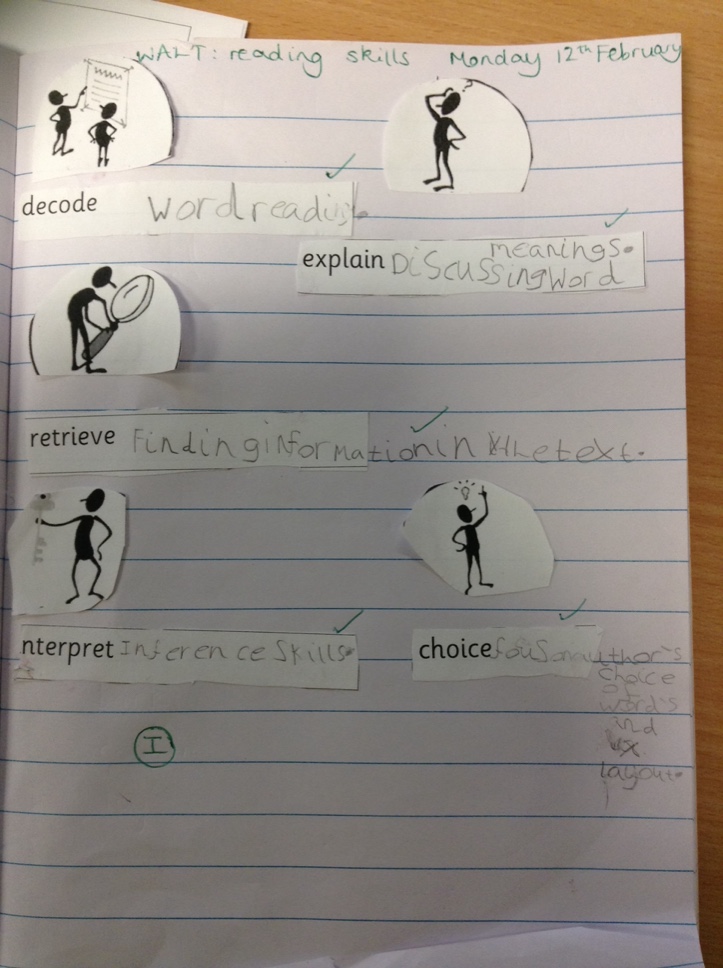 WALT: reading skills Monday 12th February
decode Word reading
meanings.
explain DiScussing Word
retrieve Finding information in the text.
nterpret Inference Skills.
choice fouS on author's
choice
of
word's
and
layout.
I